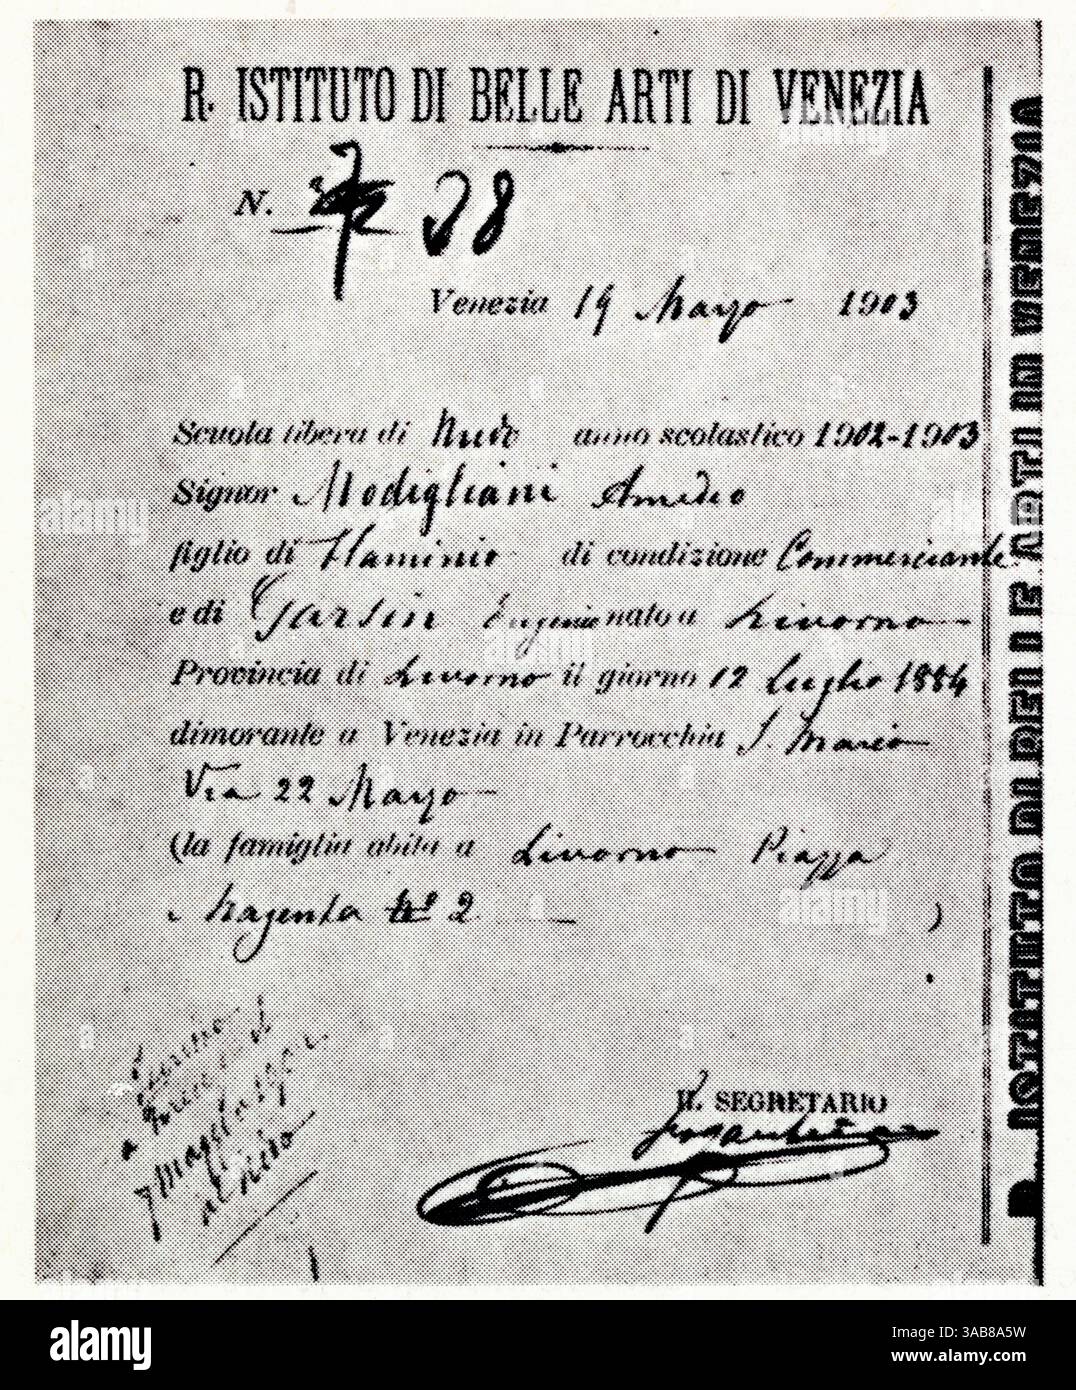 R. ISTITUTO DI BELLE ARTI DI VENEZIA
N. 28
Venezia 19 Marzo 1903
Scuola libera di Nudo anno scolastico 1902-1903
Signor Modigliani Amedeo
figlio di Flaminio di condizione Commerciante
e di Garsin Eugenia nato a Livorno
Provincia di Livorno il giorno 12 Luglio 1884
dimorante a Venezia in Parrocchia S. Marco
Via 22 Marzo
(la famiglia abita a Livorno Piazza
Magenta No 2 )
a Firenze il
7 Maggio 1902
al
IL SEGRETARIO
R. ISTITUTO DI BELLE ARTI DI VENEZIA
alamy
Image ID: 3AB8A5W
www.alamy.com